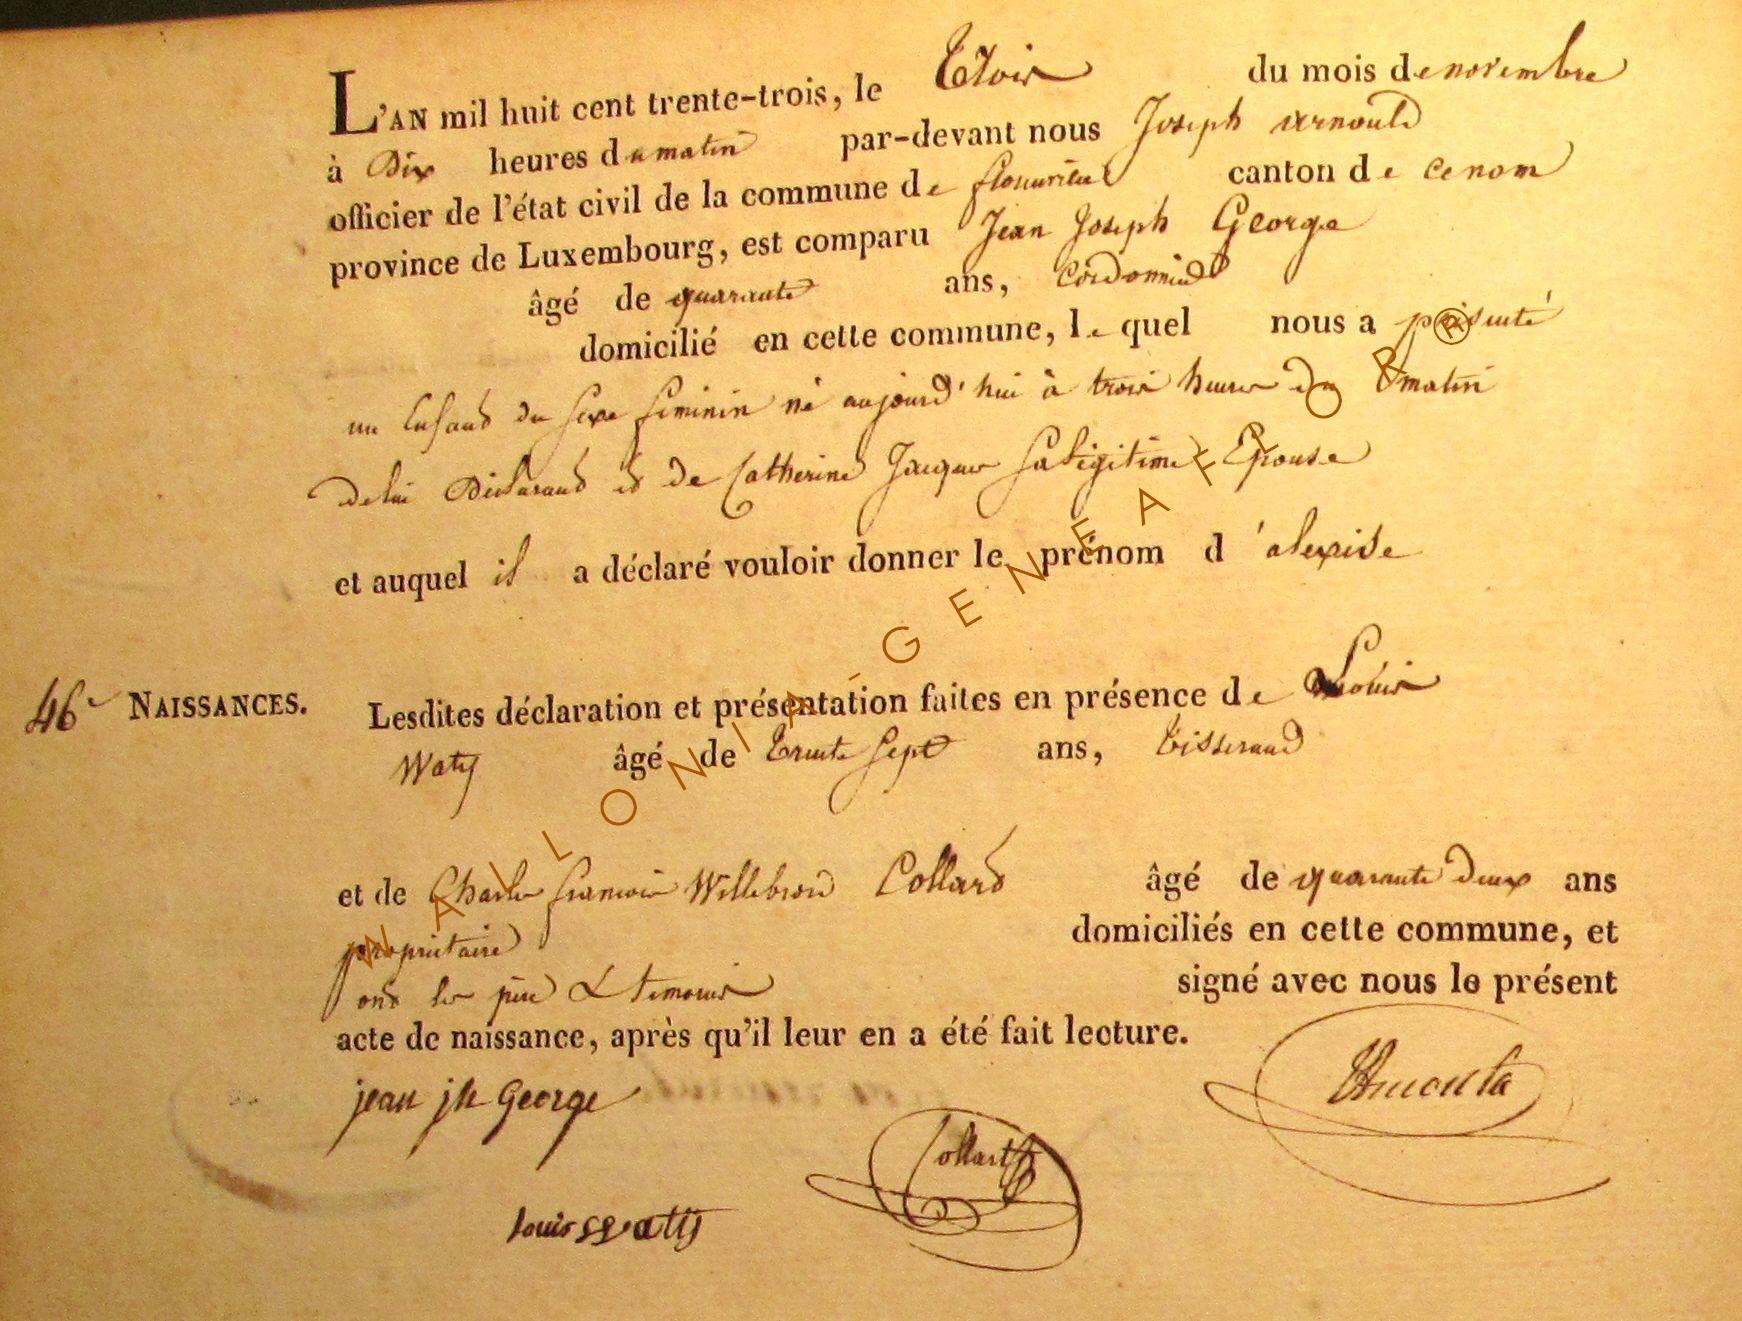 L'AN mil huit cent trente-trois, le trois du mois de novembre
à Dix heures du matin par-devant nous Joseph arnould
officier de l'état civil de la commune de canton de ce nom
province de Luxembourg, est comparu Jean Joseph George
âgé de quarante ans, Cordonnier
domicilié en cette commune, lequel nous a présenté
un Enfand du sexe feminin né aujourd'hui à trois heures du matin
de lui Declarand et de Catherine Jacques sa Legitime Epouse
et auquel il a déclaré vouloir donner le prénom d'alexise
46e NAISSANCES. Lesdites déclaration et présentation faites en présence de Louis
Waty âgé de trente sept ans, tisserand
et de Charles francois Willebrord Collard âgé de quarante deux ans
propriétaire domiciliés en cette commune, et
ond les père & temoins signé avec nous le présent
acte de naissance, après qu'il leur en a été fait lecture.
jean jh George
Collart
louis waty
WALLONIA-GENEAFLOR®